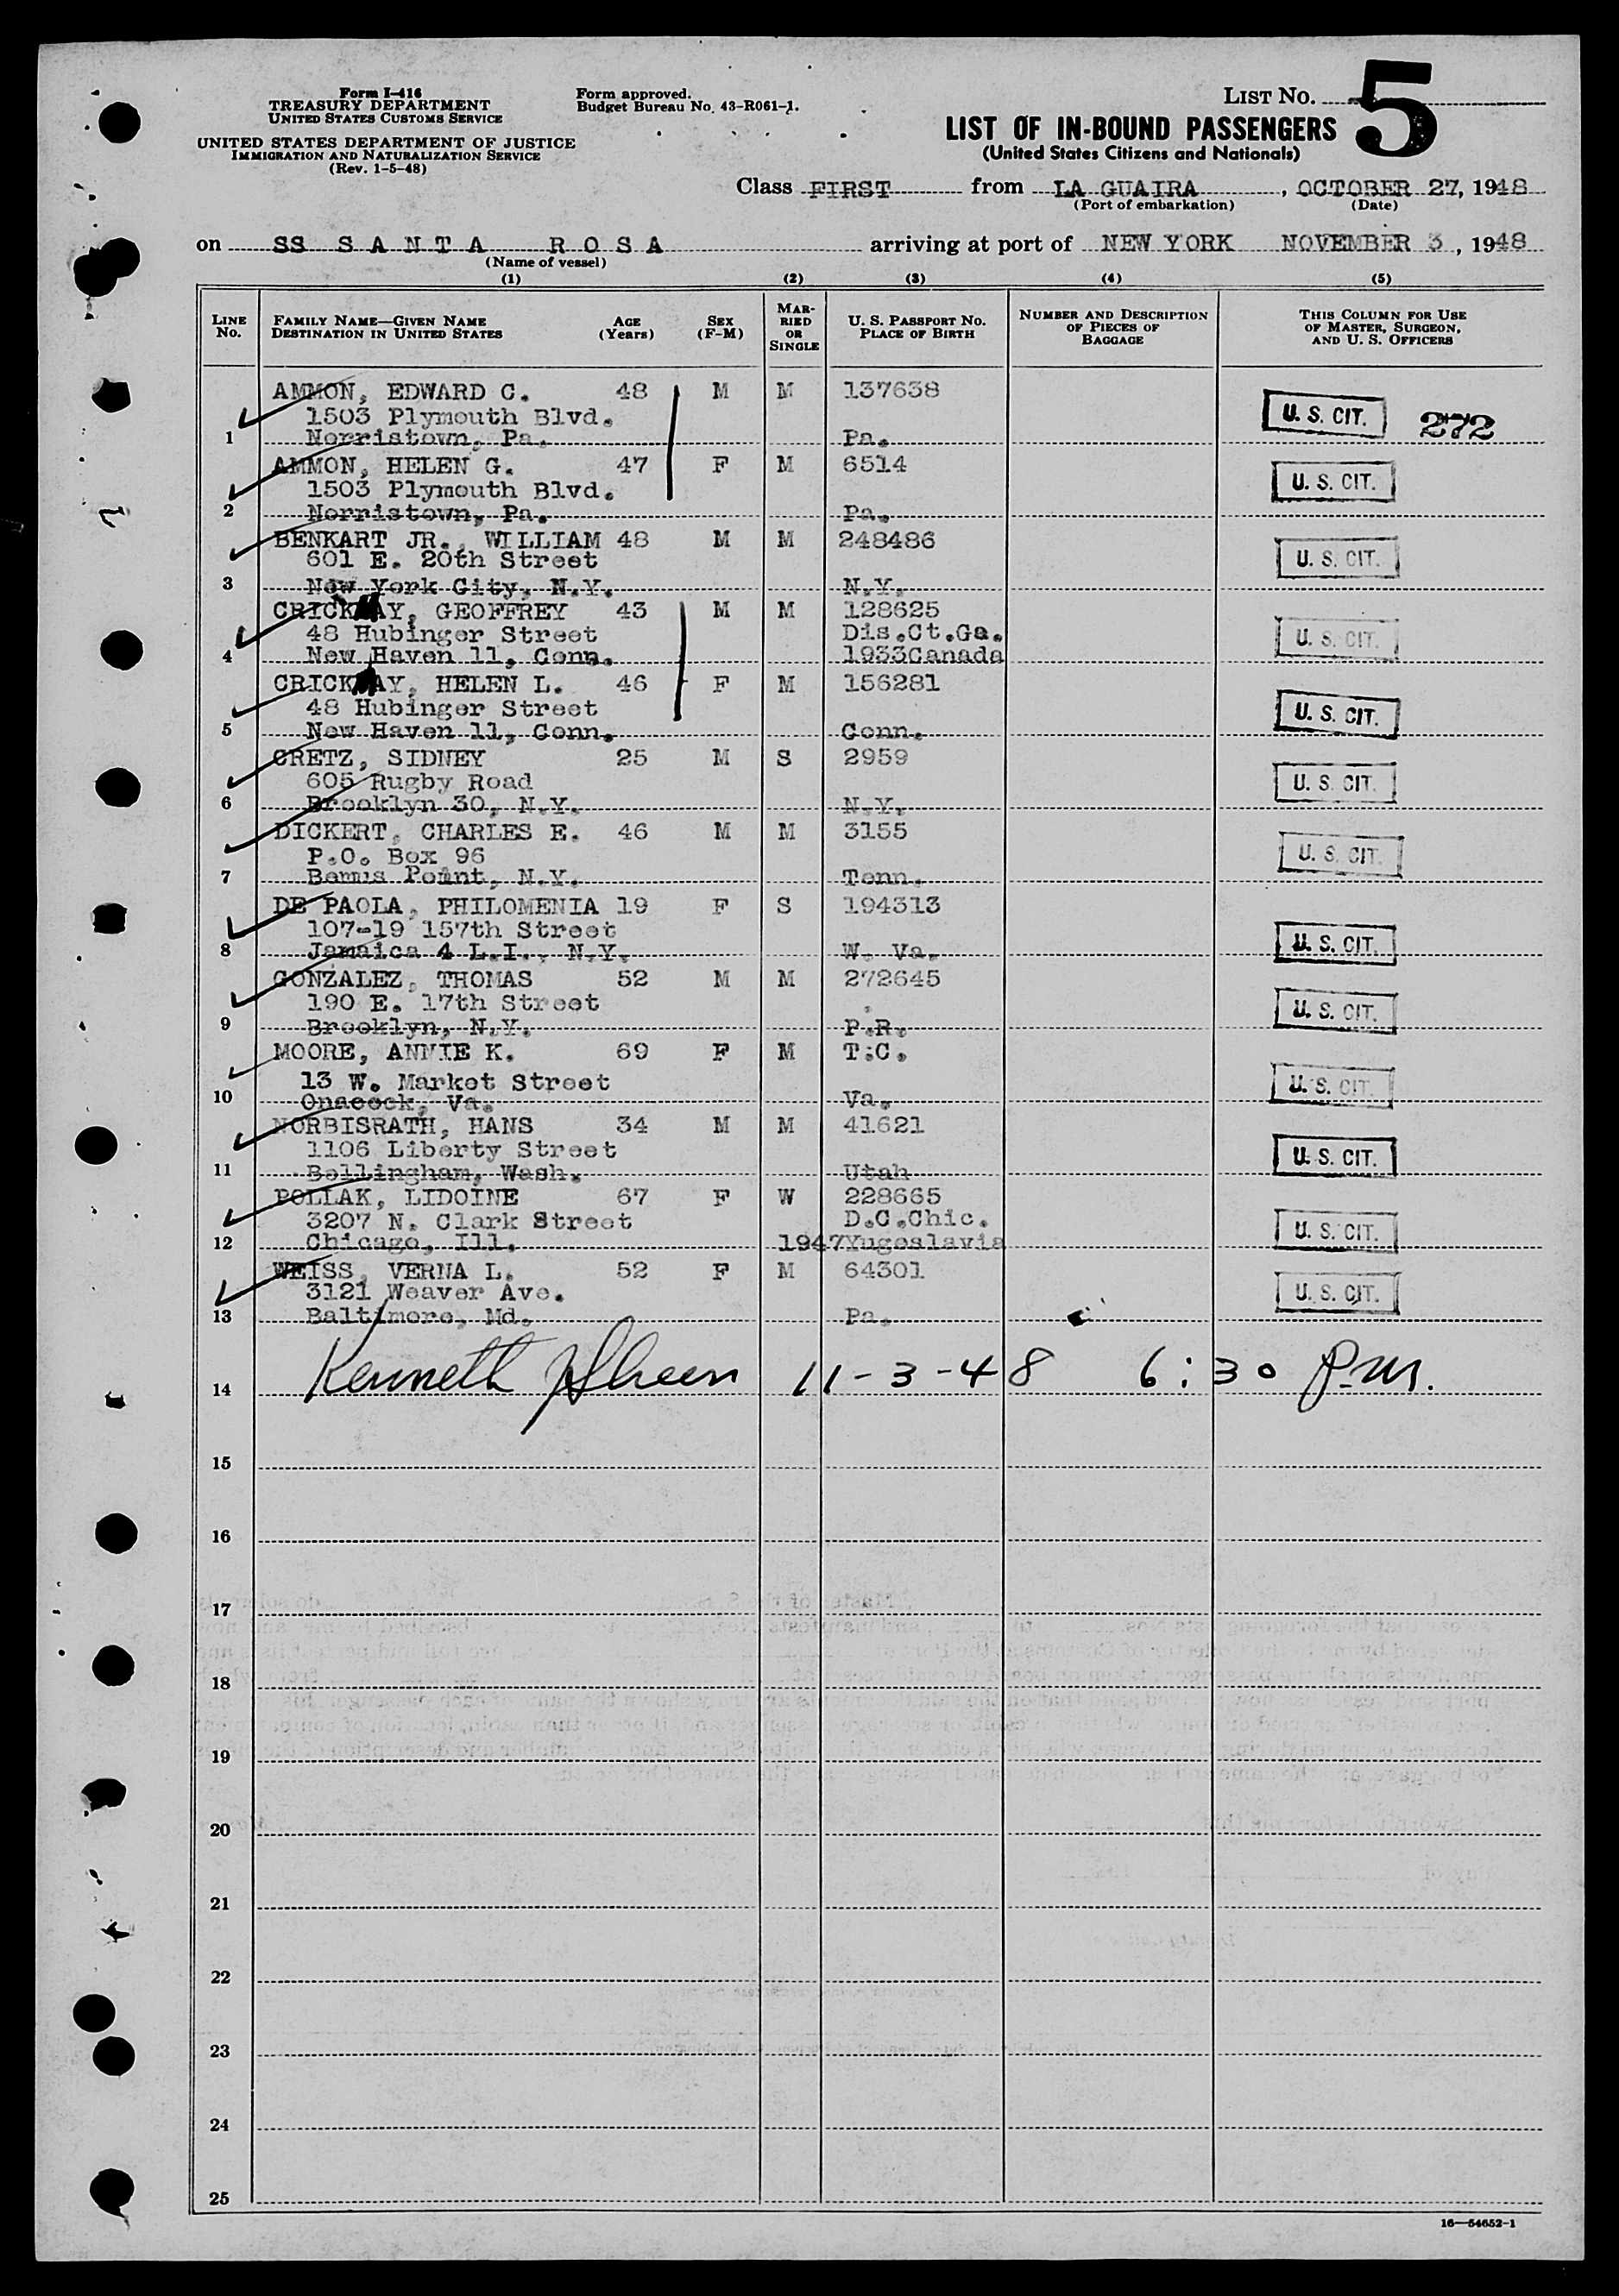 Form I-416
TREASURY DEPARTMENT
UNITED STATES CUSTOMS SERVICE
UNITED STATES DEPARTMENT OF JUSTICE
IMMIGRATION AND NATURALIZATION SERVICE
(Rev. 1-5-48)
Form approved.
Budget Bureau No. 43-R061-1.
LIST No. 5
LIST OF IN-BOUND PASSENGERS
(United States Citizens and Nationals)
Class FIRST from LA GUAIRA, OCTOBER 27, 1948
(Port of embarkation) (Date)
on SS SANTA ROSA arriving at port of NEW YORK NOVEMBER 3, 1948
(Name of vessel)
(1) (2) (3) (4) (5)
LINE No. FAMILY NAME—GIVEN NAME DESTINATION IN UNITED STATES AGE (Years) SEX (F-M) MARRIED OR SINGLE U. S. PASSPORT No. PLACE OF BIRTH NUMBER AND DESCRIPTION OF PIECES OF BAGGAGE THIS COLUMN FOR USE OF MASTER, SURGEON, AND U. S. OFFICERS
AMMON, EDWARD C. 48 M M 137638
1503 Plymouth Blvd. U. S. CIT. 272
1 Norristown, Pa. Pa.
AMMON, HELEN G. 47 F M 6514
1503 Plymouth Blvd. U. S. CIT.
2 Norristown, Pa. Pa.
BENKART JR., WILLIAM 48 M M 248486
601 E. 20th Street U. S. CIT.
3 New York City, N.Y. N.Y.
CRICKMAY, GEOFFREY 43 M M 128625
48 Hubinger Street Dis.Ct.Ga. U. S. CIT.
4 New Haven 11, Conn. 1933Canada
CRICKMAY, HELEN L. 46 F M 156281
48 Hubinger Street U. S. CIT.
5 New Haven 11, Conn. Conn.
CRETZ, SIDNEY 25 M S 2959
605 Rugby Road U. S. CIT.
6 Brooklyn 30, N.Y. N.Y.
DICKERT, CHARLES E. 46 M M 3155
P.O. Box 96 U. S. CIT.
7 Bemus Point, N.Y. Tenn.
DE PAOLA, PHILOMENIA 19 F S 194313
107-19 157th Street
8 Jamaica 4 L.I., N.Y. W. Va. U. S. CIT.
GONZALEZ, THOMAS 52 M M 272645
190 E. 17th Street U. S. CIT.
9 Brooklyn, N.Y. P.R.
MOORE, ANNIE K. 69 F M T.C.
13 W. Market Street U. S. CIT.
10 Onacock, Va. Va.
NORBISRATH, HANS 34 M M 41621
1106 Liberty Street U. S. CIT.
11 Bellingham, Wash. Utah
POLLAK, LIDOINE 67 F W 228665
3207 N. Clark Street D.C.Chic. U. S. CIT.
12 Chicago, Ill. 1947Yugoslavia
WEISS, VERNA L. 52 F M 64301
3121 Weaver Ave. U. S. CIT.
13 Baltimore, Md. Pa.
14 Kenneth 11-3-48 6:30 P.M.
15
16
17
18
19
20
21
22
23
24
25
16—54652-1